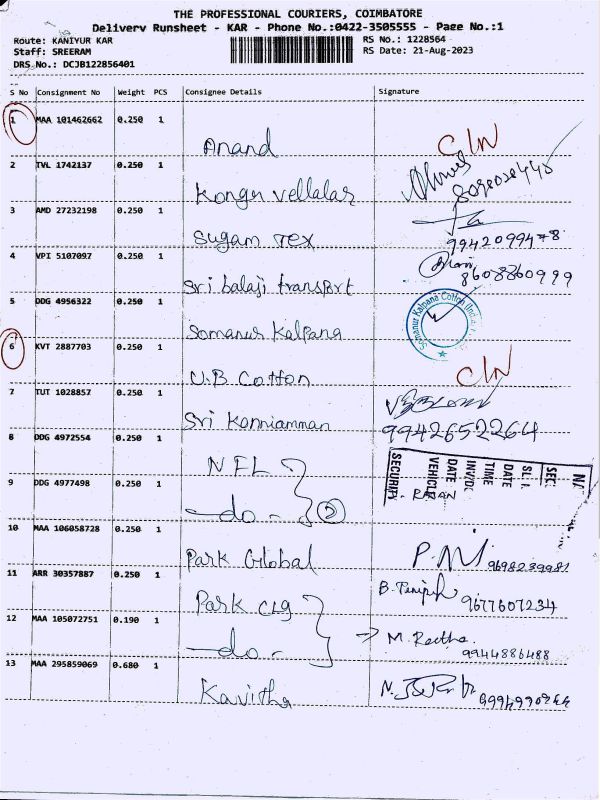 THE PROFESSIONAL COURIERS, COIMBATORE
Delivery Runsheet - KAR - Phone No.:0422-3505555 - Page No.:1
Route: KANIYUR KAR
RS No.: 1228564
Staff: SREERAM
RS Date: 21-Aug-2023
DRS No.: DCJB122856401
S No Consignment No Weight PCS Consignee Details Signature
1 MAA 101462662 0.250 1
Anand C/N
2 TVL 1742137 0.250 1
Kongu Vellalar
3 AMD 27232198 0.250 1
Sugam Tex 9942099478
4 VPI 5107097 0.250 1
Sri balaji transport 8608860999
5 DDG 4956322 0.250 1
Somanur Kalpana Somanur Kalpana Cotton
6 KVT 2887703 0.250 1
U.B Cotton C/N
7 TUT 1028857 0.250 1
Sri Kanniamman 9942652264
8 DDG 4972554 0.250 1
NFL
SECURITY VEHICLE DATE TIME DATE
9 DDG 4977498 0.250 1
-do- 2 RAJAN
10 MAA 106058728 0.250 1
Park Global 9698239981
11 ARR 30357887 0.250 1
Park clg 9677607234
12 MAA 105072751 0.190 1
-do- M. Reetha
9944886488
13 MAA 295859069 0.680 1
Kavitha